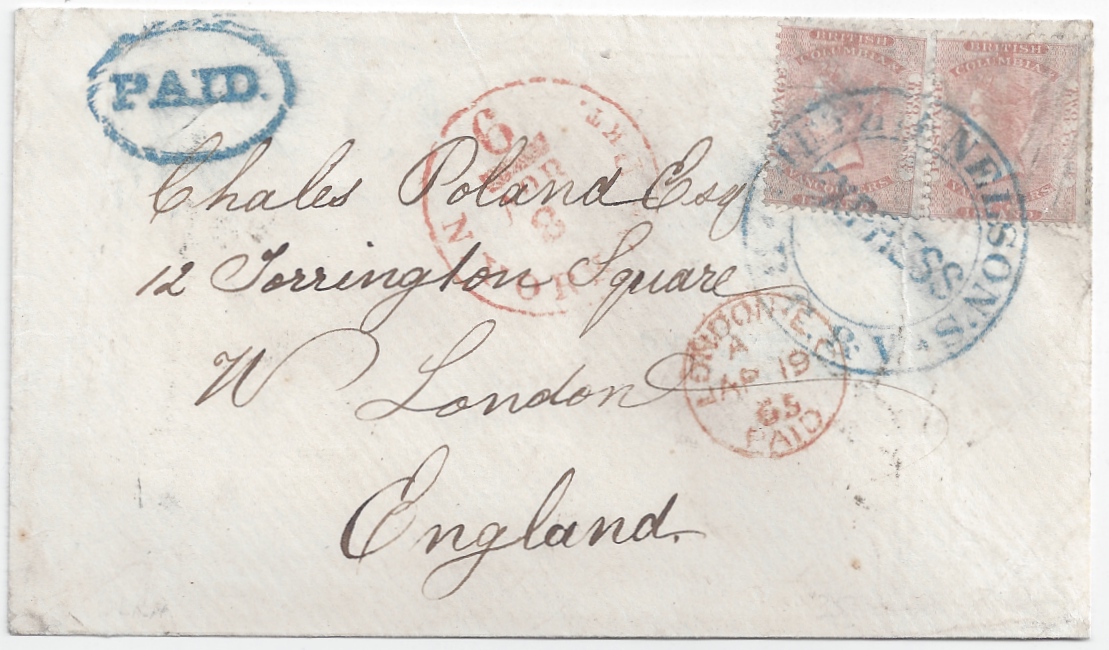 PAID.
BRITISH
COLUMBIA &
VANCOUVERS
BRITISH
COLUMBIA &
VANCOUVERS
ISLAND
NELSON'S
EXPRESS
V &
6
APR
8
N YORK
Chales Poland Esq
12 Torrington Square
W London
England.
LONDON E.C
A
AP 19
65
PAID